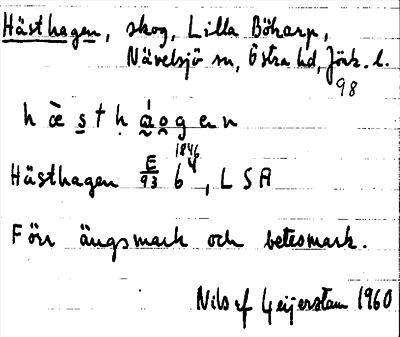 Hästhagen, skog, Lilla Böharp,
Nävelsjö sn, Östra hd, Jönk. l.
98
h æ̀ s t h á o g e n
1846
Hästhagen E/93 6, LSA
Förr ängsmark och betesmark.
Nils af Geijerstam 1960